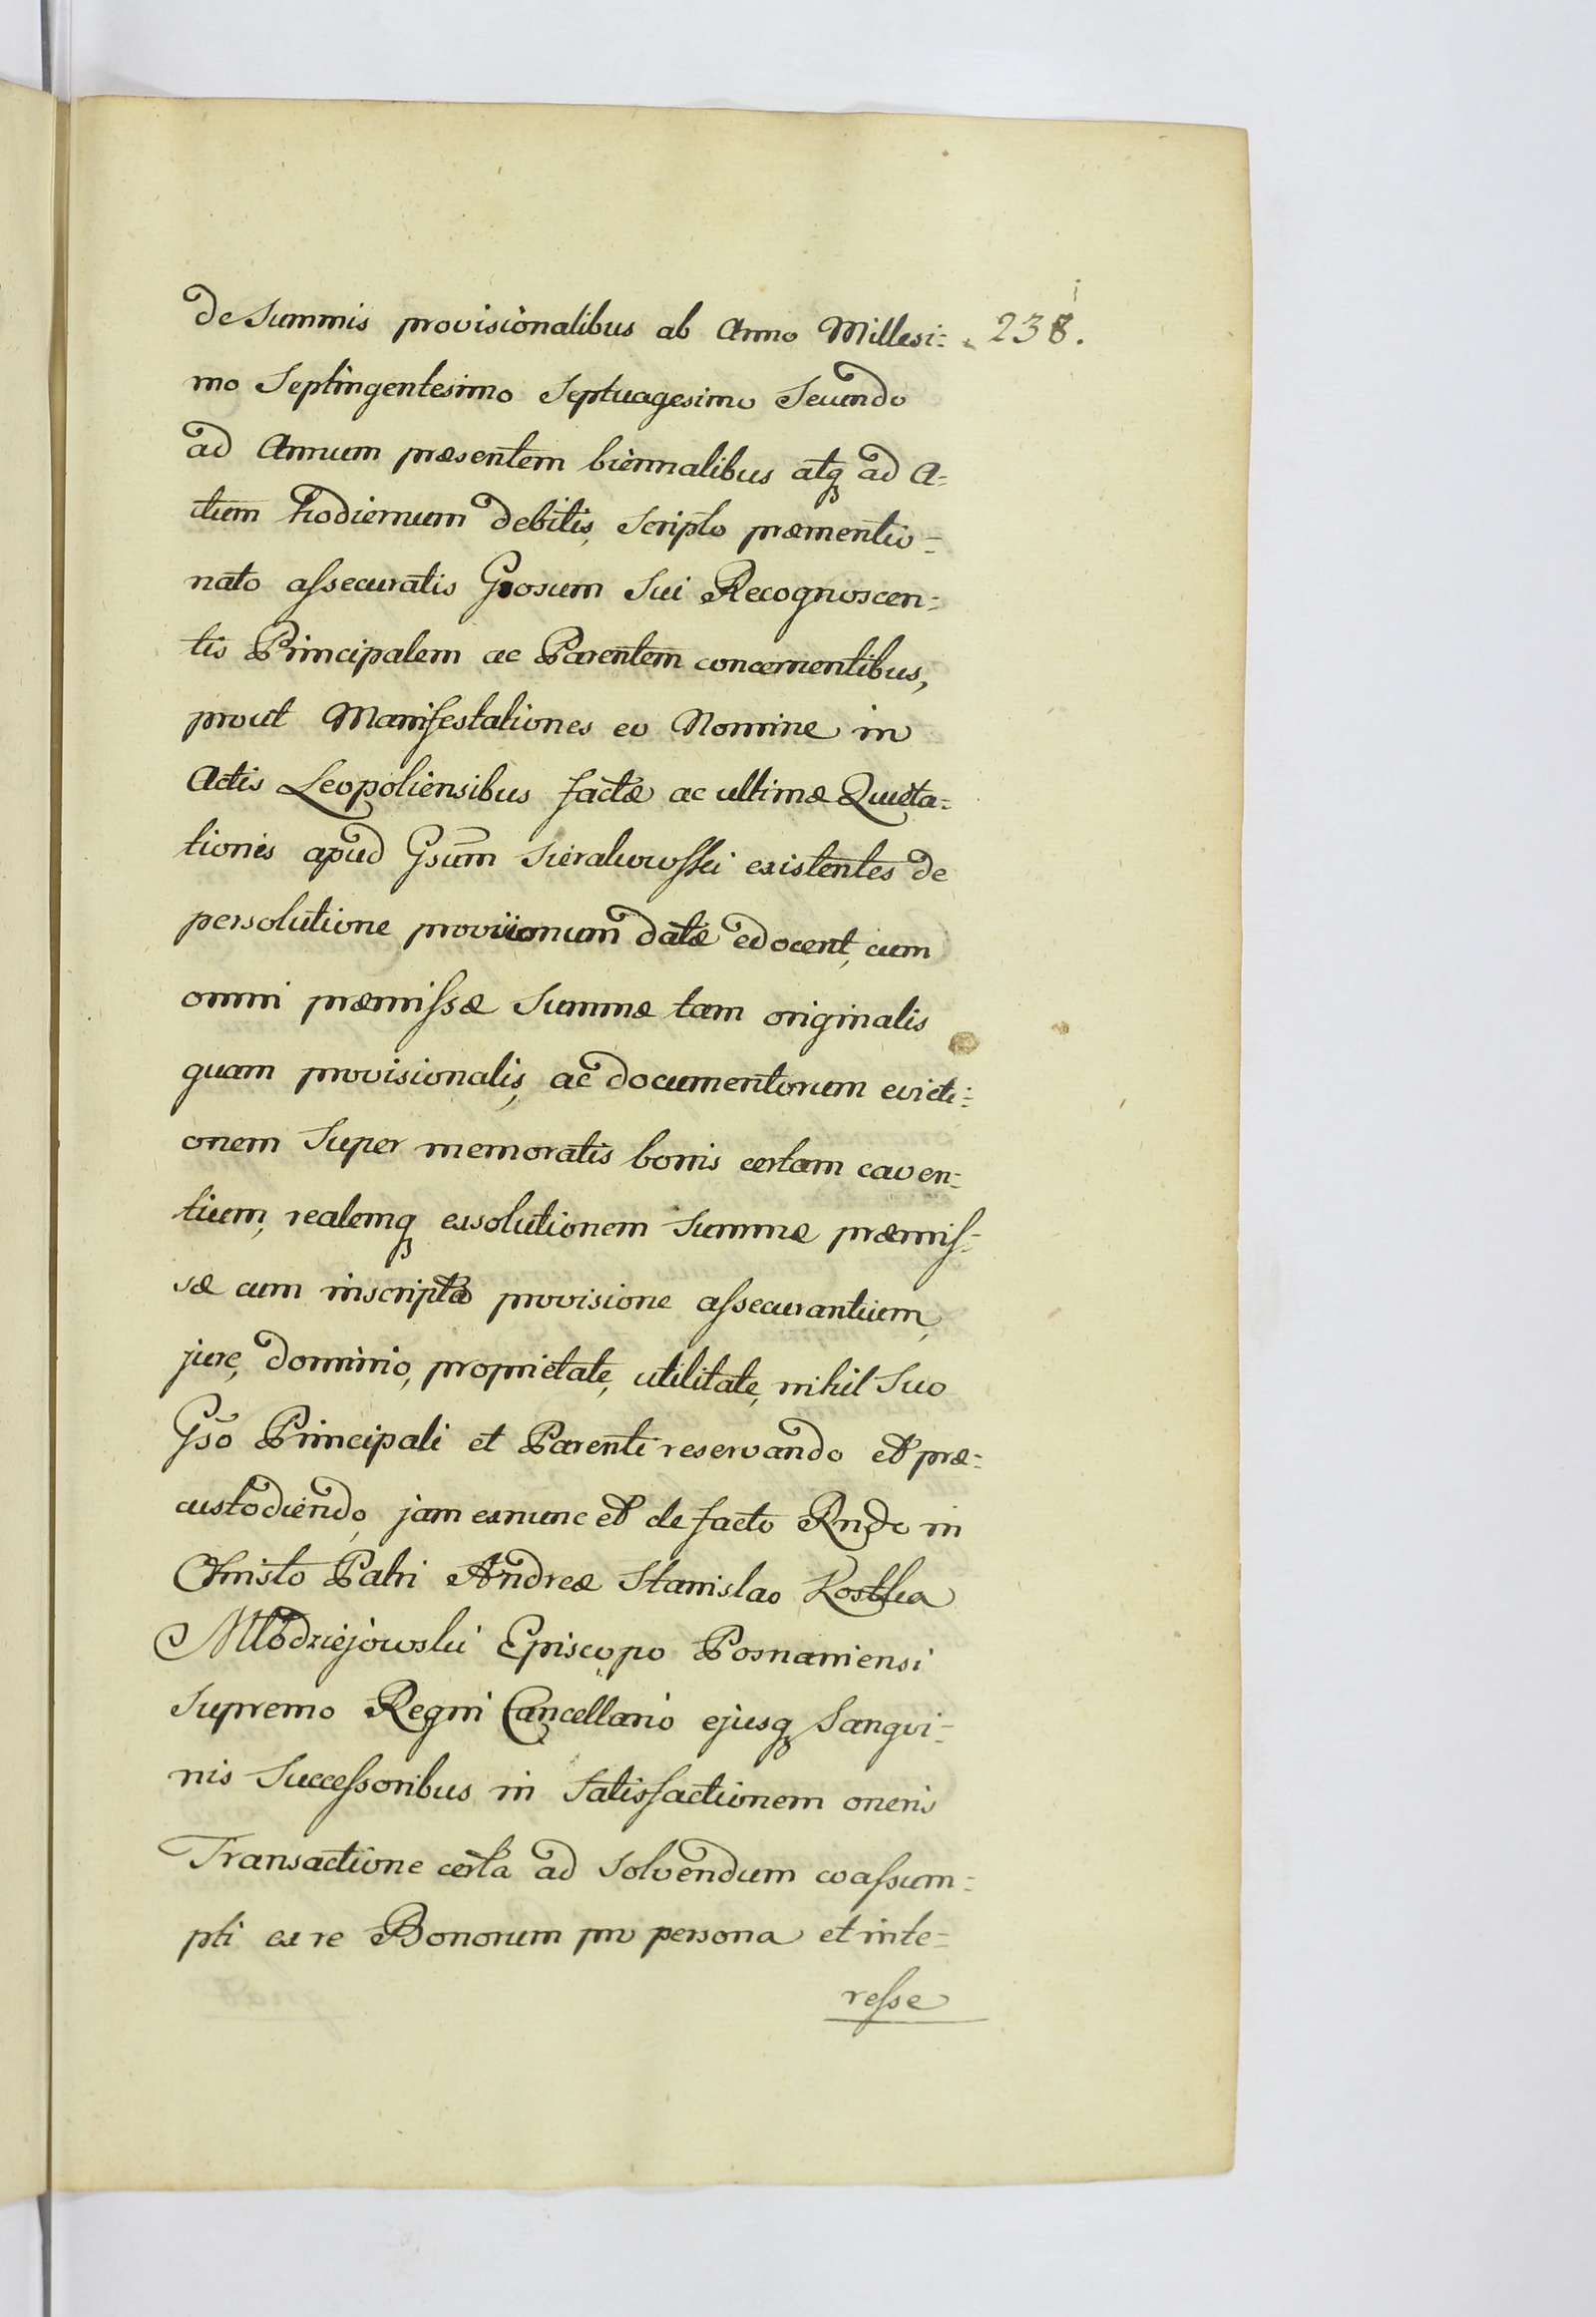 de Summis provisionalibus ab Anno Millesi= 238.
mo Septingentesimo Septuagesimo Secundo
ad Annum præsentem biennalibus atq ad A=
ctum hodiernum debitis, Scripto præmentio=
nato assecuratis Gsosum Sui Recognoscen=
tis Principalem ac Parentem concernentibus,
prout Manifestationes eo Nomine in
Actis Leopoliensibus factæ ac ultimæ Quieta=
tiones apud Gsum Sierakowski existentes de
persolutione provisionum datæ edocent, cum
omni præmissæ Summæ tam originalis
quam provisionalis, ac documentorum evicti=
onem Super memoratis bonis certam caven=
tium, realemq exsolutionem Summæ præmis=
sæ cum inscripta provisione assecurantium,
jure, dominio, proprietate, utilitate, nihil Suo
Gso Principali et Parenti reservando et præ=
custodiendo, jam exnunc et de facto Rndo in
Christo Patri Andreæ Stanislao Kostka
Młodziejowski Episcopo Posnaniensi
Supremo Regni Cancellario ejusq Sangvi=
nis Successoribus in Satisfactionem oneris
Transactione certa ad Solvendum coassum=
pti ex re Bonorum pro persona et inte=
resse